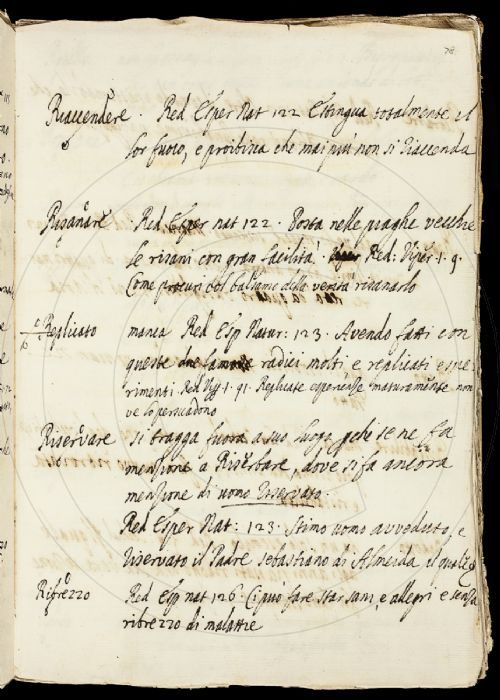 78
Riaccendere. Red Esper Nat 122 Estingua totalmente il
lor fuoco, e proibisca che mai più non si riaccenda
Risanare Red Esper nat 122. Posta nelle piaghe vecchie
le risani con gran facilità. Red: Vip: 1. 9.
Come procuri col balsamo della verità risanarlo
Replicato manca Red Esp Natur: 123. Avendo fatti con
queste due famose radici molti e replicati espe
rimenti Red Vip 1. 91. Replicate esperienze maturamente non
ve lo persuadono
Riservare si tragga fuora a suo luogo perche se ne fa
menzione a Riserbare, dove si fa ancora
menzione di uomo riservato.
Red Esper Nat: 123. Stimo uomo avveduto, e
riservato il Padre Sebastiano di Almeida, il quale
Ribrezzo Red Esp nat 126. Ci può fare star sani, e allegri e senza
ribrezzo di malattie